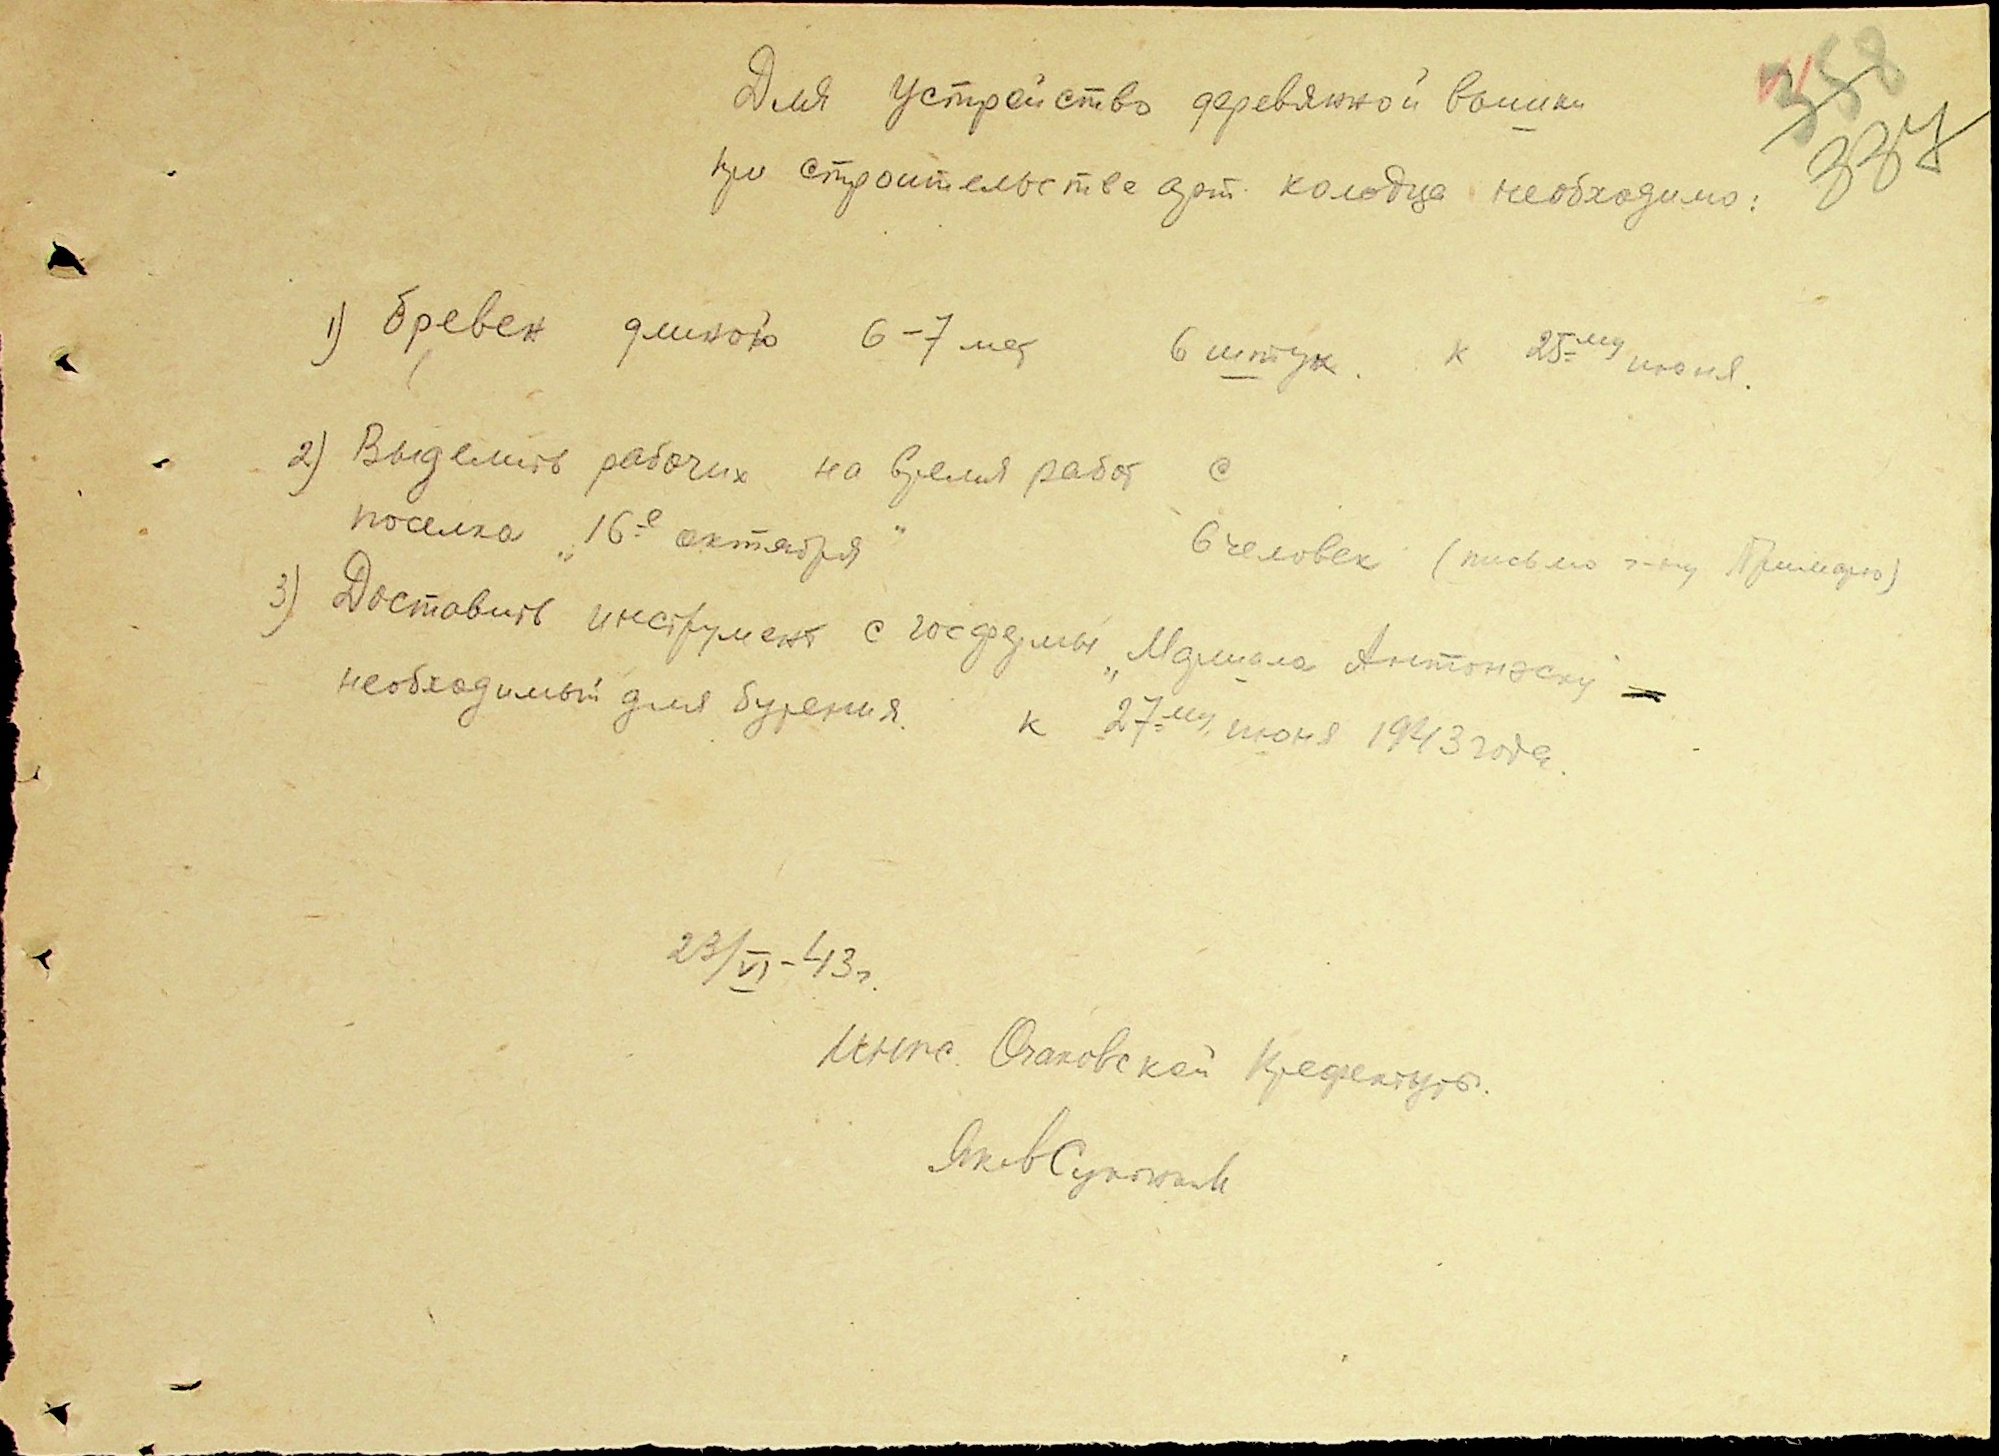 358
337
Для устройство деревянной вышки
при строительстве арт. колодца необходимо:
1) Бревен длиною 6-7 мет 6 штук. к 25-му июня.
2) Выделить рабочих на время работ с
поселка „16-е октября" 6 человек (письмо г-ну Примарю)
3) Доставить инструмент с госфермы „Маршала Антонэску"
необходимый для бурения. к 27-му июня 1943 года.
23/VI-43г.
Инж. Очаковской Префектуры.
Яков